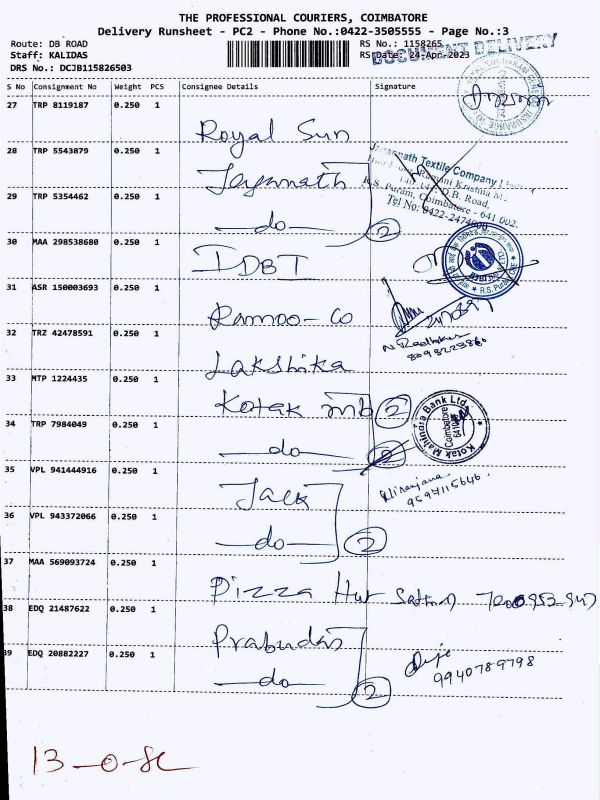 THE PROFESSIONAL COURIERS, COIMBATORE
Delivery Runsheet - PC2 - Phone No.:0422-3505555 - Page No.:3
Route: DB ROAD RS No.: 1158265
Staff: KALIDAS RS Date: 24-Apr-2023
DOCUMENT DELIVERY
DRS No.: DCJB115826503
S No Consignment No Weight PCS Consignee Details Signature
27 TRP 8119187 0.250 1
Royal Sun
28 TRP 5543879 0.250 1
Jagannath Textile Company
R.S. Puram, Coimbatore - 641 002.
Tel No: 0422-2474000
Jaganath
29 TRP 5354462 0.250 1
do 2
30 MAA 298538680 0.250 1
IDBI
R.S. Puram, CBE
31 ASR 150003693 0.250 1
Ramoo-Co
32 TRZ 42478591 0.250 1
Lakshika
N. Radhakri
8098223860
33 MTP 1224435 0.250 1
Kotak mb 2
Kotak Mahindra Bank Ltd.
Coimbatore
34 TRP 7984049 0.250 1
do 2
35 VPL 941444916 0.250 1
Jack
Niranjana
9597115646
36 VPL 943372066 0.250 1
do 2
37 MAA 569093724 0.250 1
Pizza Hut
38 EDQ 21487622 0.250 1
Prabudas
39 EDQ 20882227 0.250 1
9940789798
do 2
13-0-8c